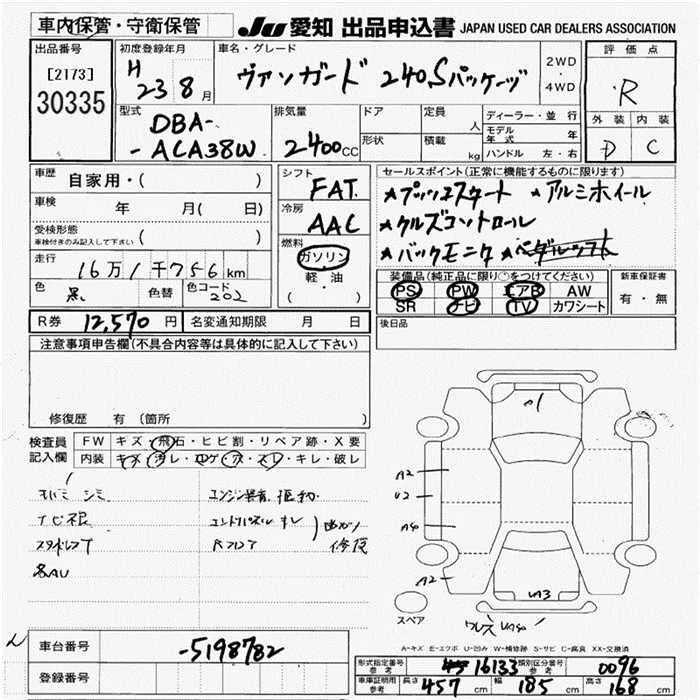 車内保管・守衛保管 JU 愛知 出品申込書 JAPAN USED CAR DEALERS ASSOCIATION
出品番号
[2173]
30335
初度登録年月
H 23 8月
車名・グレード
ヴァンガード 240Sパッケージ
2WD
・
4WD
評価点
R
外装 内装
D C
型式
DBA-
-ACA38W
排気量
2400cc
ドア
形状
定員 人
積載 kg
ディーラー・並行
モデル年式 年
ハンドル 左・右
車歴 自家用・( )
車検 年 月( 日)
受検形態
車検付きのみ記入して下さい ( )
走行 16万1千756km
色 黒 色替 色コード 202
シフト
FAT
冷房
AAC
燃料
ガソリン
・
軽・油
( )
セールスポイント(正常に機能するものに限ります)
★プッシュスタート ★アルミホイール
★クルズコントロール
★バックモニタ
装備品(純正品に限り○をつけてください)
PS PW エアB AW
SR ナビ TV カワシート
新車保証書
有・無
R券 12,570円 名変通知期限 月 日
後日品
注意事項申告欄(不具合内容等は具体的に記入して下さい)
修復歴 有(箇所 )
検査員
記入欄
FW キズ・飛石・ヒビ割・リペア跡・X要
内装 キズ・汚レ・コゲ・穴・スレ・キレ・破レ
シミ
エンジン異音
修復
A2
U2
A40
A2
UA3
スペア
A-キズ E-エクボ U-凹み W-補修跡 S-サビ C-腐食 XX-交換済
車台番号 -5198782
登録番号
形式指定番号
参考 16133
類別区分番号
参考 0096
車庫証明用
参考
長さ 457cm 幅 185cm 高さ 168cm